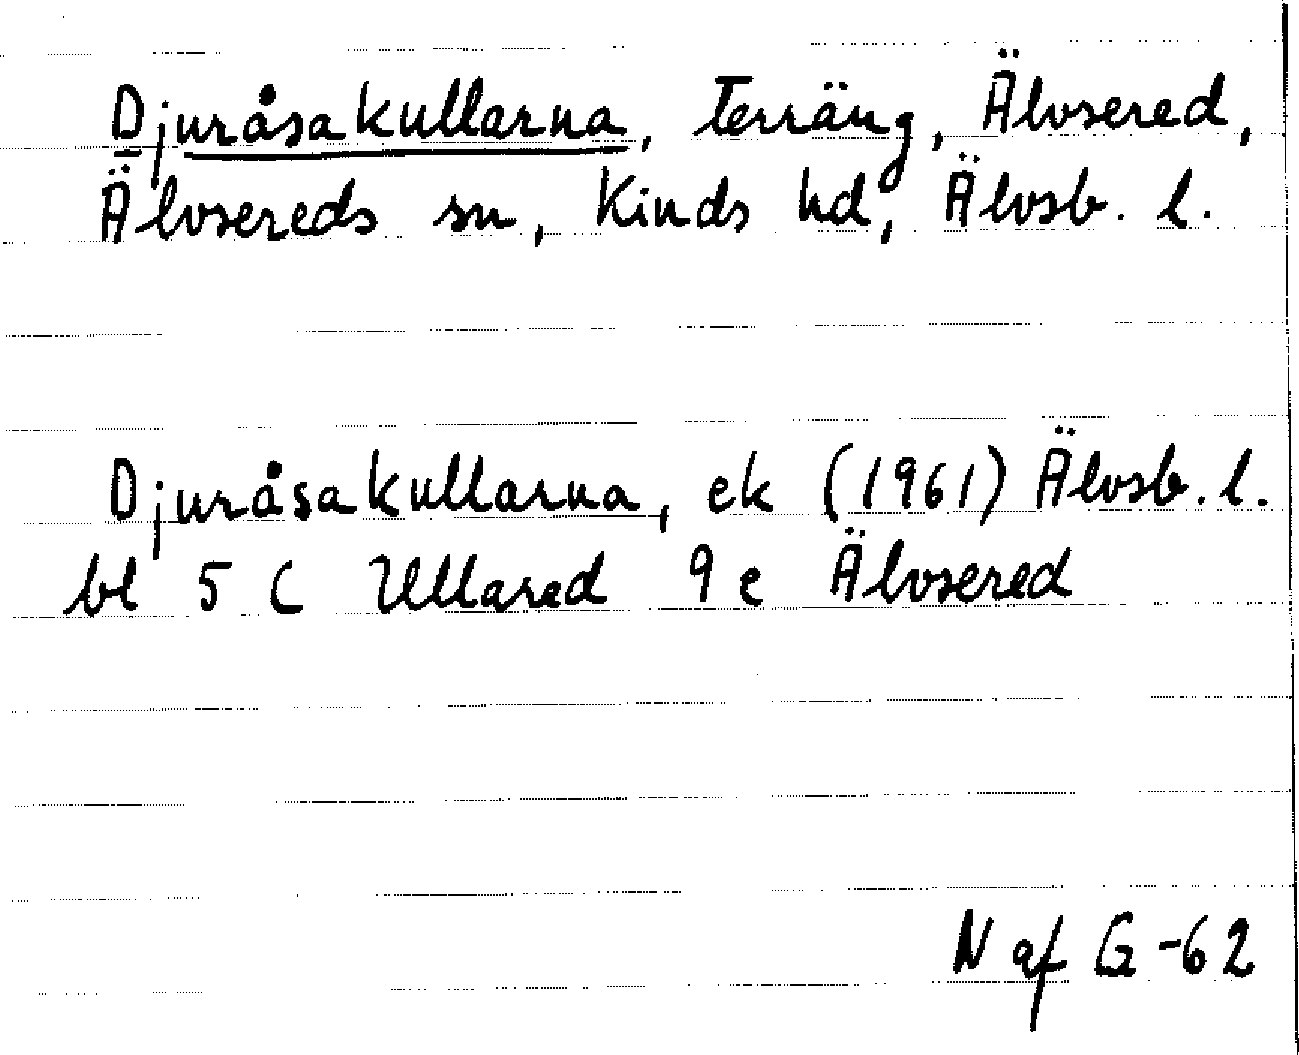 Djuråsakullarna, terräng, Älvsered,
Älvsereds sn, Kinds hd, Älvsb. l.
Djuråsakullarna, ek (1961) Älvsb. l.
bl 5 C Ullared 9 e Älvsered
N af G -62